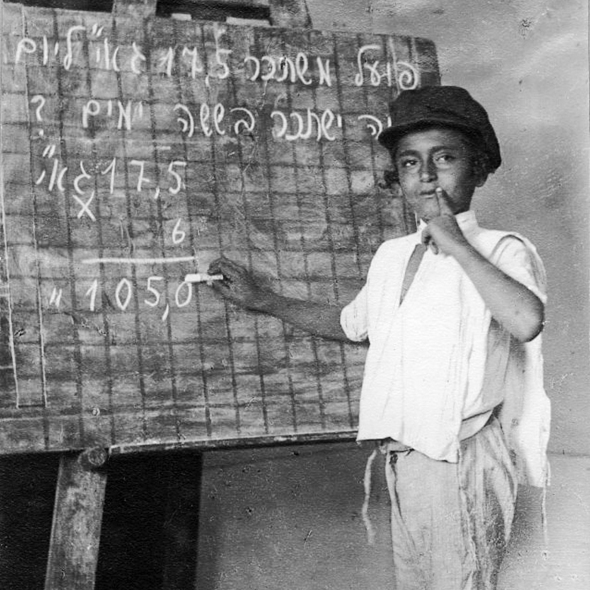 פועל משתכר 17,5 גא"י ליום
ישתכר בששה ימים ?
17,5 גא"י
X
6
105,0 "